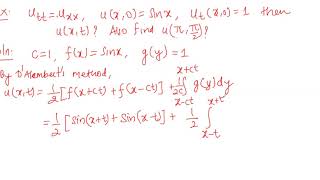 x: u_tt = u_xx, u(x,0) = sinx, u_t(x,0) = 1 then
u(x,t)? Also find u(π, π/2)?
oln: c=1, f(x) = sinx, g(y) = 1
By D'Alembert's method,
u(x,t) = 1/2 [f(x+ct) + f(x-ct)] + 1/2c ∫_{x-ct}^{x+ct} g(y)dy
= 1/2 [sin(x+t) + sin(x-t)] + 1/2 ∫_{x-t}^{x+t}